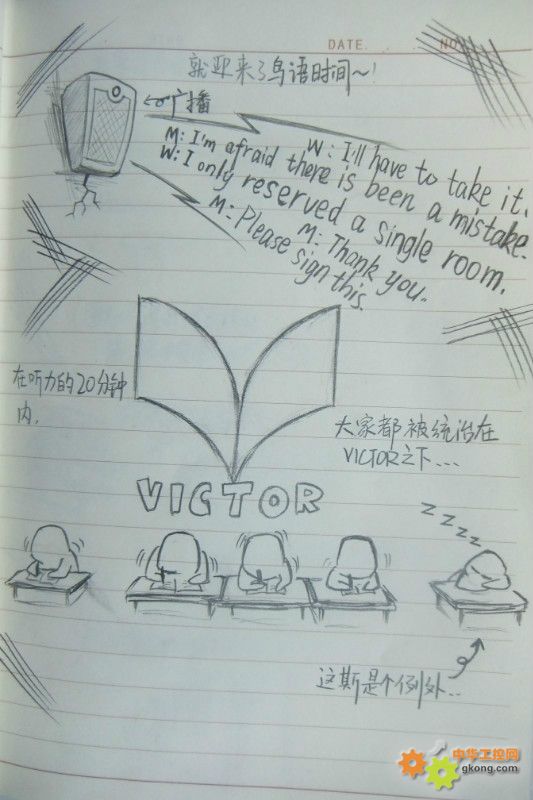 DATE. . . NO
就迎来了鸟语时间~!
广播
W: I'll have to take it.
M: I'm afraid there is been a mistake.
W: I only reserved a single room.
M: Thank you.
M: Please sign this.
在听力的20分钟
内.
大家都被统治在
VICTOR之下...
VICTOR
z z z z
这斯是个例外..
中华工控网
gkong.com